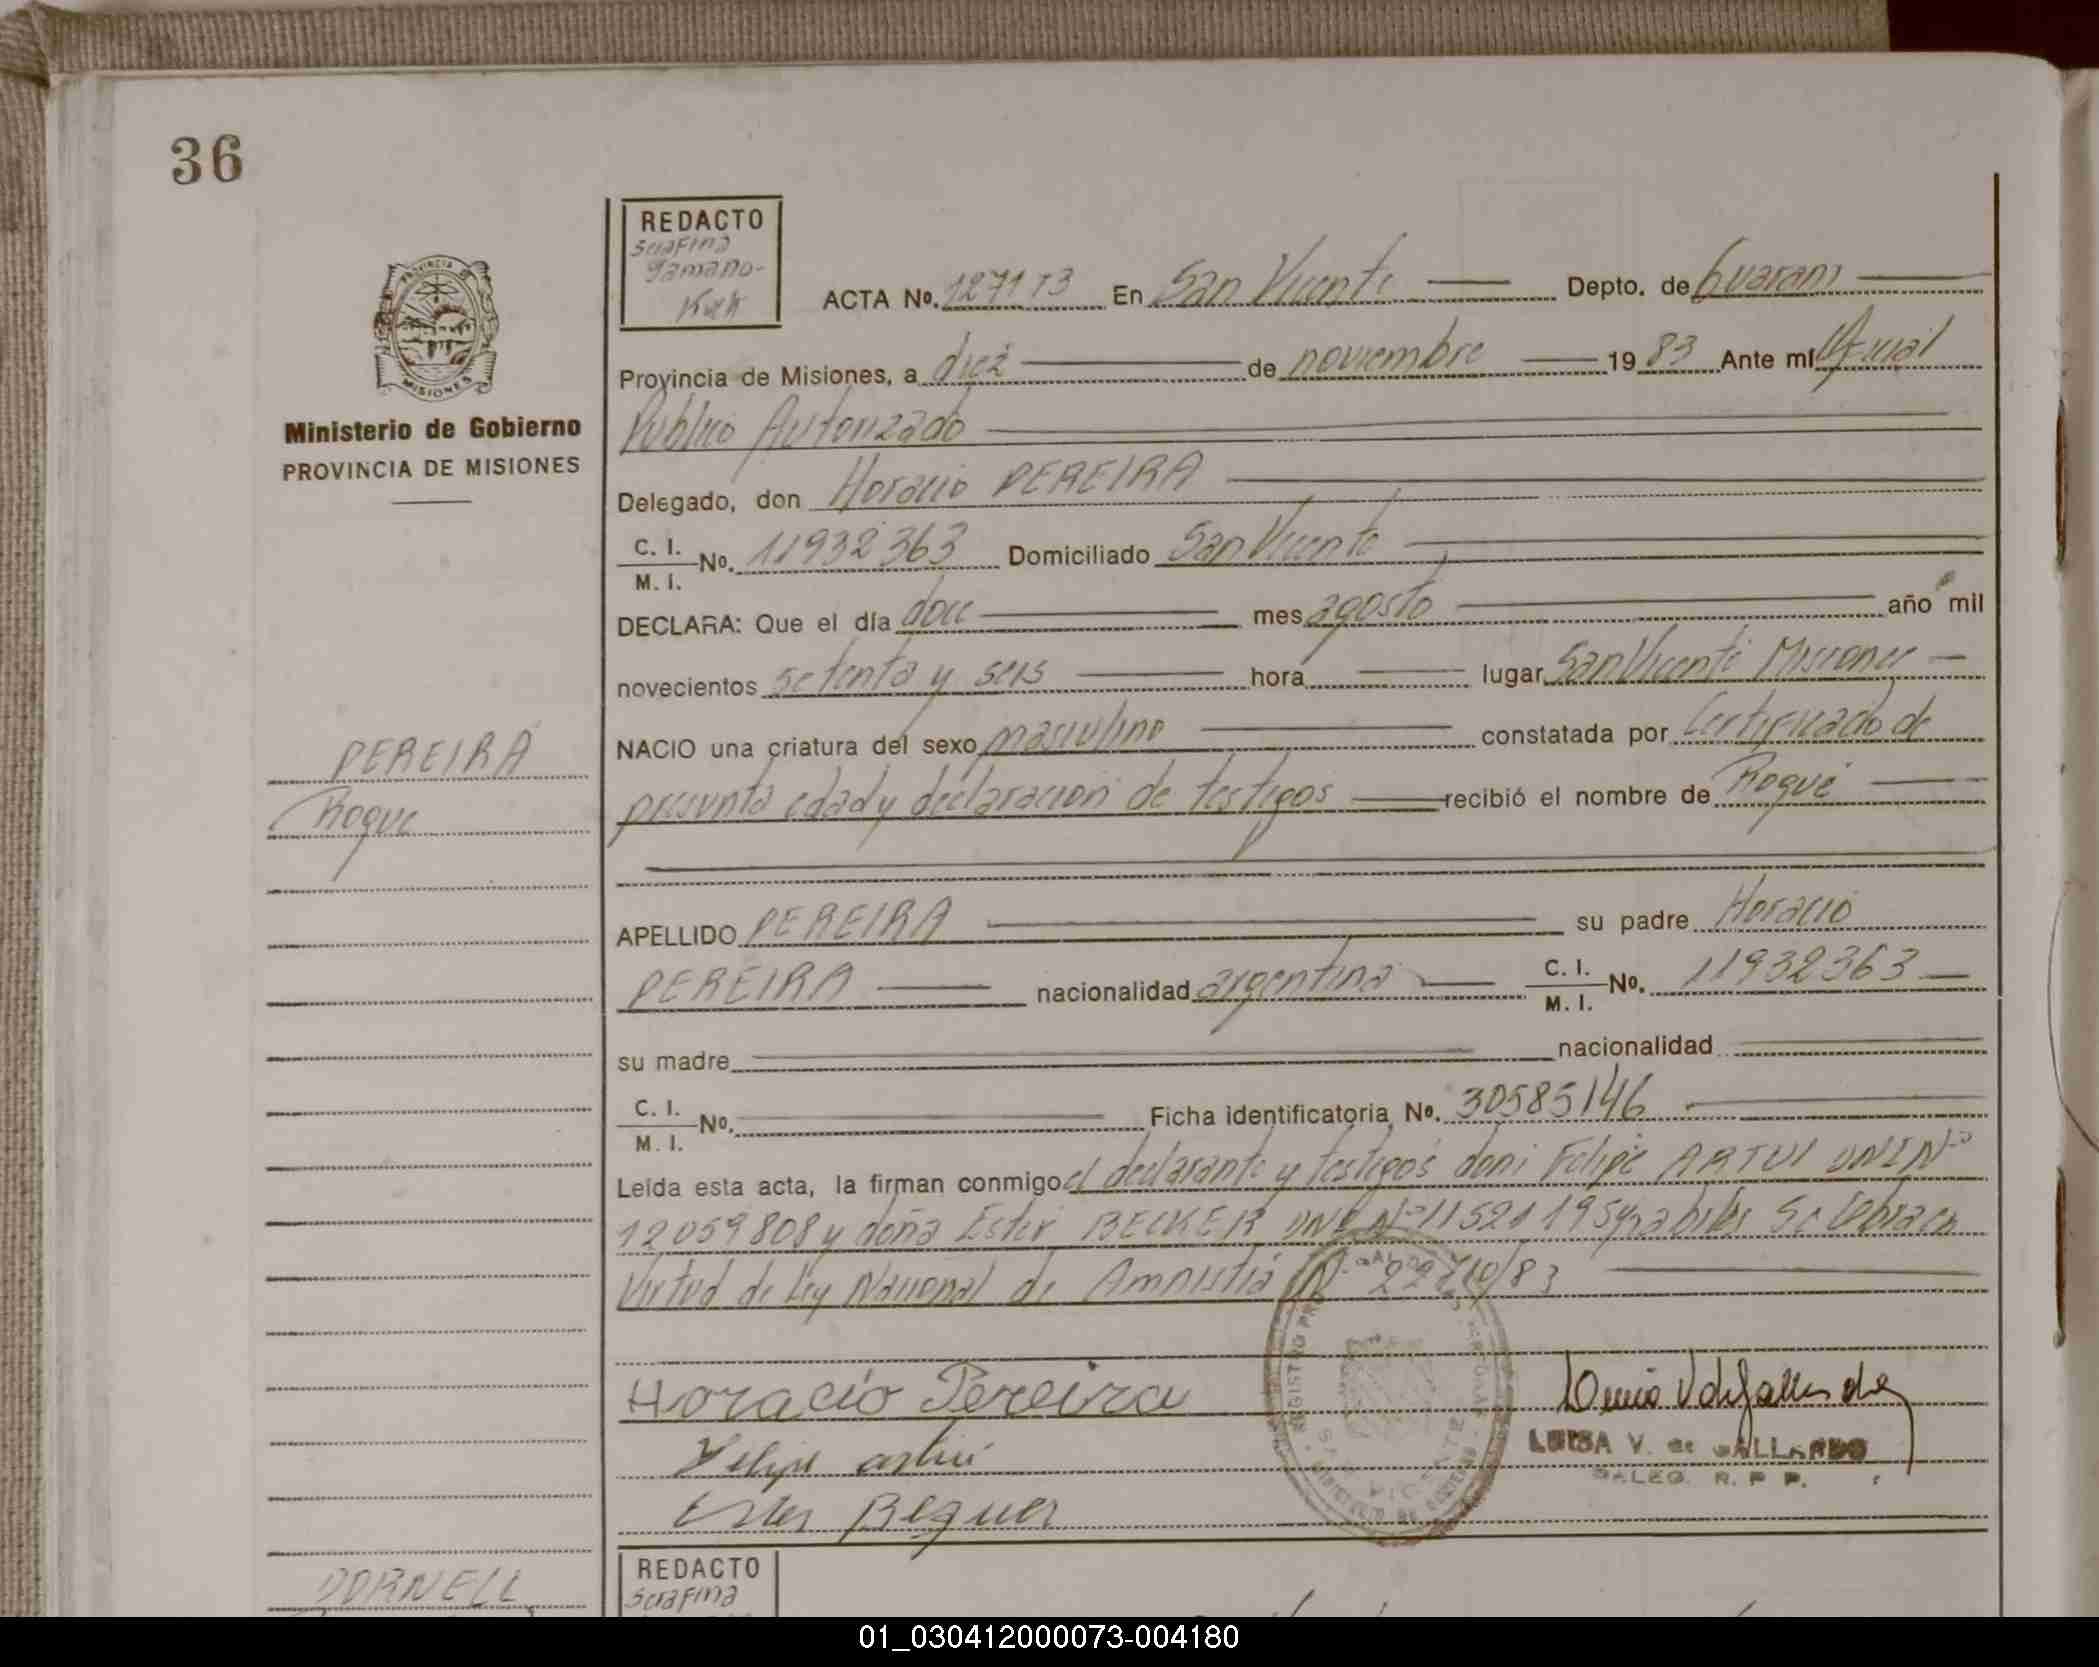 36
REDACTO
Serafina
PROVINCIA DE
MISIONES
ACTA Nº. En San Vicente Depto. de Guarani
Provincia de Misiones, a diez de noviembre 1983 Ante mí Oficial
Publico Autorizado
Ministerio de Gobierno
PROVINCIA DE MISIONES
Delegado, don Horacio PEREIRA
C. I.
M. I. Nº. 11932363 Domiciliado San Vicente
DECLARA: Que el día doce mes agosto año mil
novecientos setenta y seis hora lugar San Vicente Misiones
NACIO una criatura del sexo masculino constatada por Certificado de
presunta edad y declaracion de testigos recibió el nombre de Roque
PEREIRA
Roque
APELLIDO PEREIRA su padre Horacio
PEREIRA nacionalidad argentina C. I.
M. I. Nº. 11932363
su madre nacionalidad
C. I.
M. I. Nº. Ficha identificatoria Nº. 30585146
Leída esta acta, la firman conmigo el declarante y testigos don: Felipe ARTUI DNI Nº
12059808 y doña Ester BECKER DNI Nº
Virtud de Ley Nacional de Amnistia Nº
Horacio Pereira
Felipe
Ester Beguer
REGISTRO
SAN VICENTE
LUISA V. de GALLARDO
DALEG. R. P. P.
REDACTO
Serafina
DORNELL
01_030412000073-004180